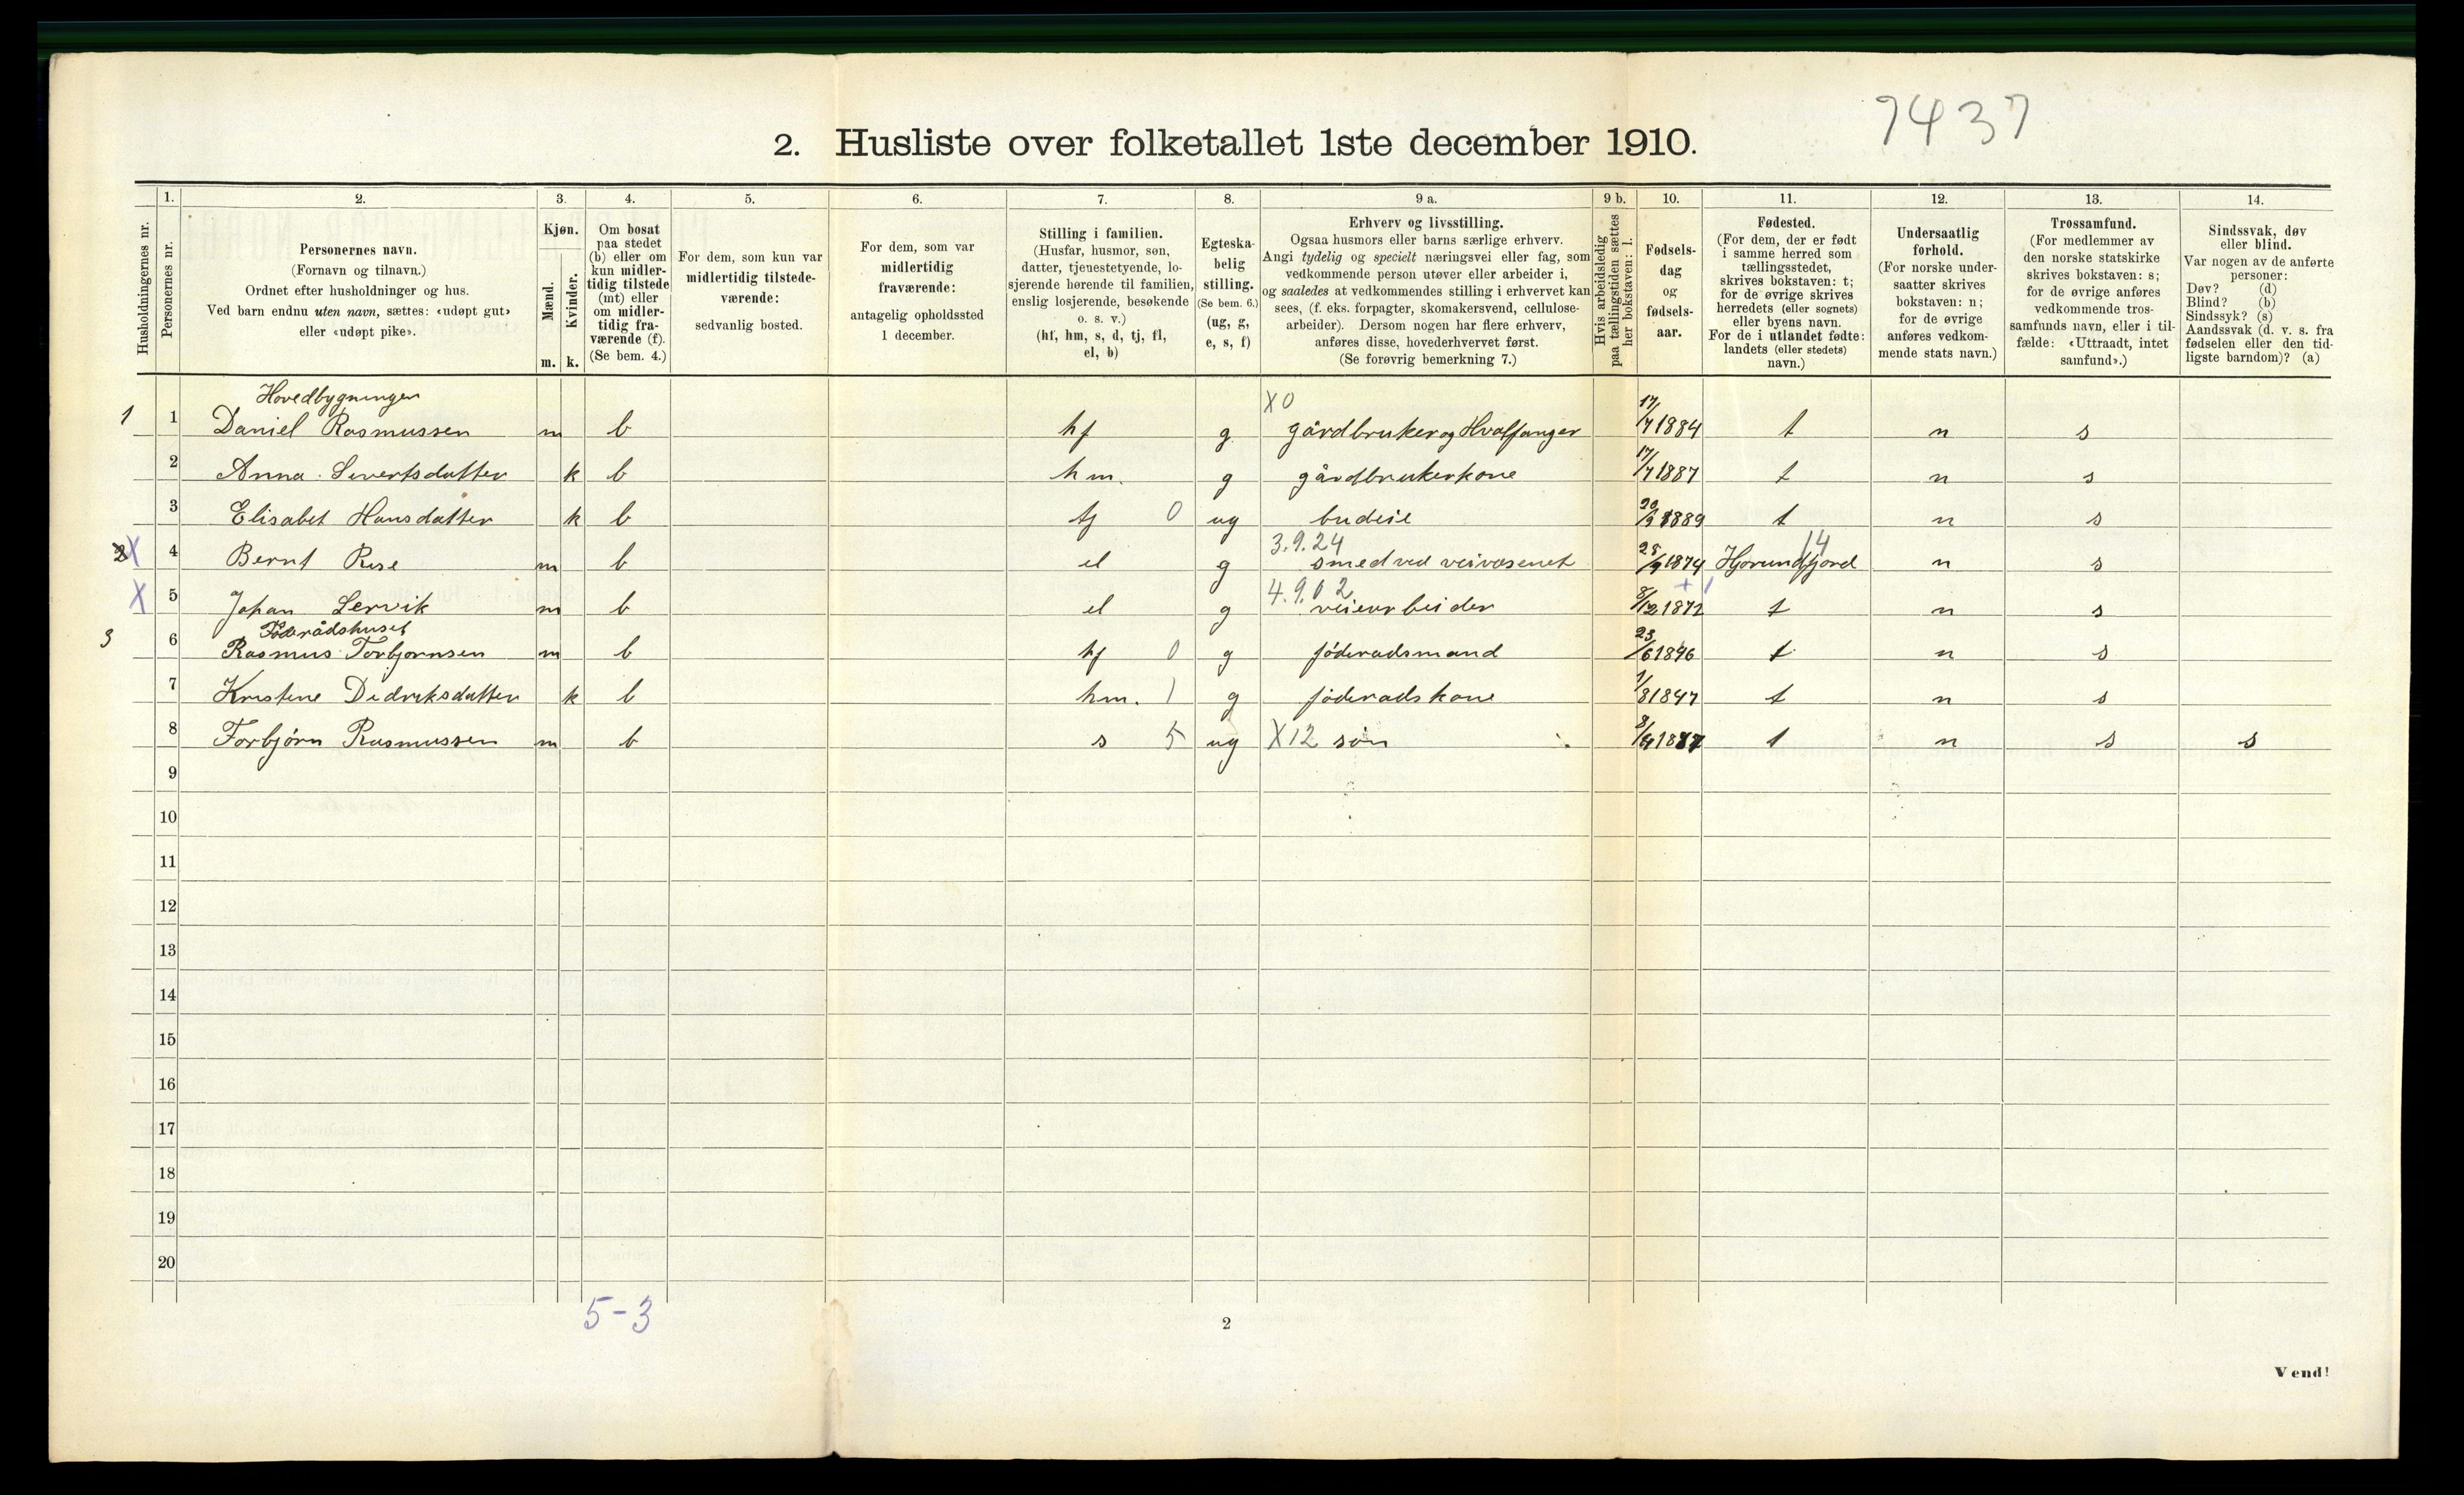 7437
2. Husliste over folketallet 1ste december 1910.
Husholdningernes nr.
1. Personernes nr.
2. Personernes navn.
(Fornavn og tilnavn.)
Ordnet efter husholdninger og hus.
Ved barn endnu uten navn, sættes: «udøpt gut»
eller «udøpt pike».
3. Kjøn.
Mænd. m.
Kvinder. k.
4. Om bosat
paa stedet
(b) eller om
kun midler-
tidig tilstede
(mt) eller
om midler-
tidig fra-
værende (f).
(Se bem. 4.)
5. For dem, som kun var
midlertidig tilstede-
værende:
sedvanlig bosted.
6. For dem, som var
midlertidig
fraværende:
antagelig opholdssted
1 december.
7. Stilling i familien.
(Husfar, husmor, søn,
datter, tjenestetyende, lo-
sjerende hørende til familien,
enslig losjerende, besøkende
o. s. v.)
(hf, hm, s, d, tj, fl,
el, b)
8. Egteska-
belig
stilling.
(Se bem. 6.)
(ug, g,
e, s, f)
9 a. Erhverv og livsstilling.
Ogsaa husmors eller barns særlige erhverv.
Angi tydelig og specielt næringsvei eller fag, som
vedkommende person utøver eller arbeider i,
og saaledes at vedkommendes stilling i erhvervet kan
sees, (f. eks. forpagter, skomakersvend, cellulose-
arbeider). Dersom nogen har flere erhverv,
anføres disse, hovederhvervet først.
(Se forøvrig bemerkning 7.)
9 b. Hvis arbeidsledig
paa tællingstiden sættes
her bokstaven: l.
10. Fødsels-
dag
og
fødsels-
aar.
11. Fødested.
(For dem, der er født
i samme herred som
tællingsstedet,
skrives bokstaven: t;
for de øvrige skrives
herredets (eller sognets)
eller byens navn.
For de i utlandet fødte:
landets (eller stedets)
navn.)
12. Undersaatlig
forhold.
(For norske under-
saatter skrives
bokstaven: n;
for de øvrige
anføres vedkom-
mende stats navn.)
13. Trossamfund.
(For medlemmer av
den norske statskirke
skrives bokstaven: s;
for de øvrige anføres
vedkommende tros-
samfunds navn, eller i til-
fælde: «Uttraadt, intet
samfund».)
14. Sindssvak, døv
eller blind.
Var nogen av de anførte
personer:
Døv? (d)
Blind? (b)
Sindssyk? (s)
Aandssvak (d. v. s. fra
fødselen eller den tid-
ligste barndom)? (a)
Hovedbygningen X0
1 1 Daniel Rasmussen m b hf g gårdbruker og Hvalfanger 17/7 1884 t n s
2 Anna Sivertsdatter k b hm. g gårdbrukerkone 17/7 1887 t n s
3 Elisabet Hansdatter k b tj 0 ug budeie 20/9 1889 t n s
3.9.24 14
2 X 4 Bernt Rise m b el g smed ved veivæsenet 28/9 1874 Hjørundfjord n s
4.9.02
X 5 Johan Lervik m b el g veiearbeider 8/12 1872 t n s
Föderådshuset
3 6 Rasmus Torbjørnsen m b hf 0 g föderadsmand 23/6 1846 t n s
7 Kristine Didriksdatter k b hm. 1 g föderadskone 1/8 1847 t n s
8 Torbjørn Rasmussen m b s 5 ug X12 søn 8/4 1887 t n s s
9
10
11
12
13
14
15
16
17
18
19
20
5-3
2
Vend!